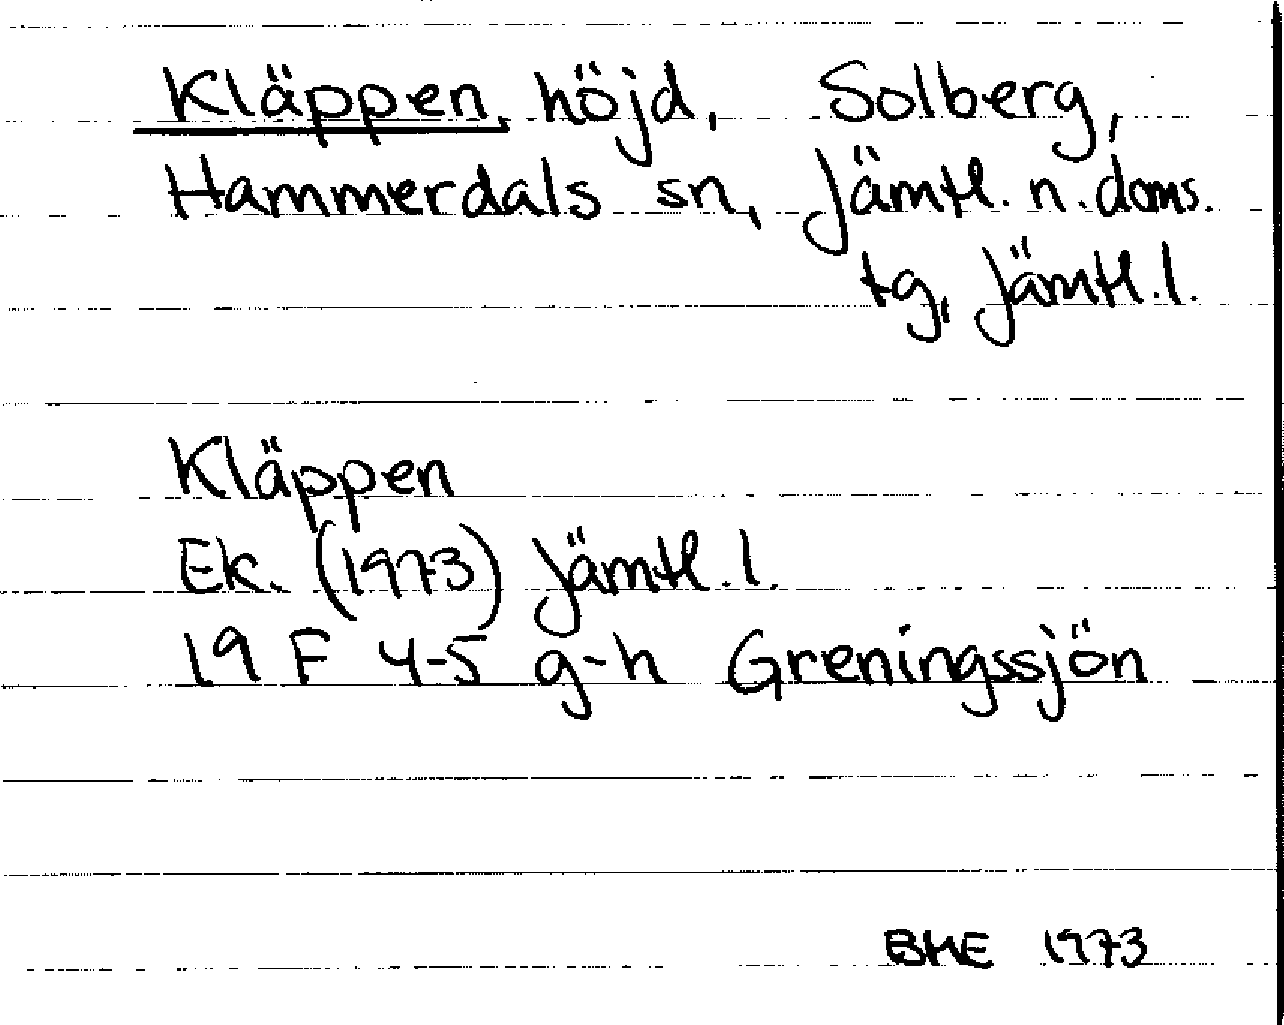 Kläppen, höjd, Solberg,
Hammerdals sn, Jämtl. n. doms.
tg, Jämtl. l.
Kläppen
Ek. (1973) Jämtl. l.
19 F 4-5 g-h Greningssjön
BME 1973